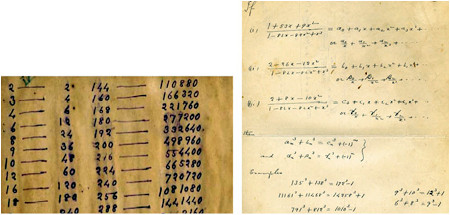 2 — 2 144 — 110880
3 — 4 160 — 166320
4 — 6 168 — 221760
6 — 12 180 — 277200
8 — 24 192 — 332640
9 — 36 200 — 498960
10 — 48 216 — 554400
12 — 60 224 — 665280
16 — 120 240 — 720720
18 — 180 256 — 1081080
240 288 1441440
If
(i) (1+53x+9x²)/(1-82x-82x²+x³) = a₀+a₁x+a₂x²+a₃x³+···
or α₀/x + α₁/x² + α₂/x³ + ···
(ii) (2-26x-12x²)/(1-82x-82x²+x³) = b₀+b₁x+b₂x²+b₃x³+···
or β₀/x + β₁/x² + β₂/x³ + ···
(iii) (2+8x-10x²)/(1-82x-82x²+x³) = c₀+c₁x+c₂x²+c₃x³+···
or γ₀/x + γ₁/x² + γ₂/x³ + ···
then
aₙ³+bₙ³ = cₙ³+(-1)ⁿ
and αₙ³+βₙ³ = γₙ³+(-1)ⁿ
Examples
135³+138³ = 172³-1
11161³+11468³ = 14258³+1
791³+812³ = 1010³-1
9³+10³ = 12³+1
6³+8³ = 9³-1